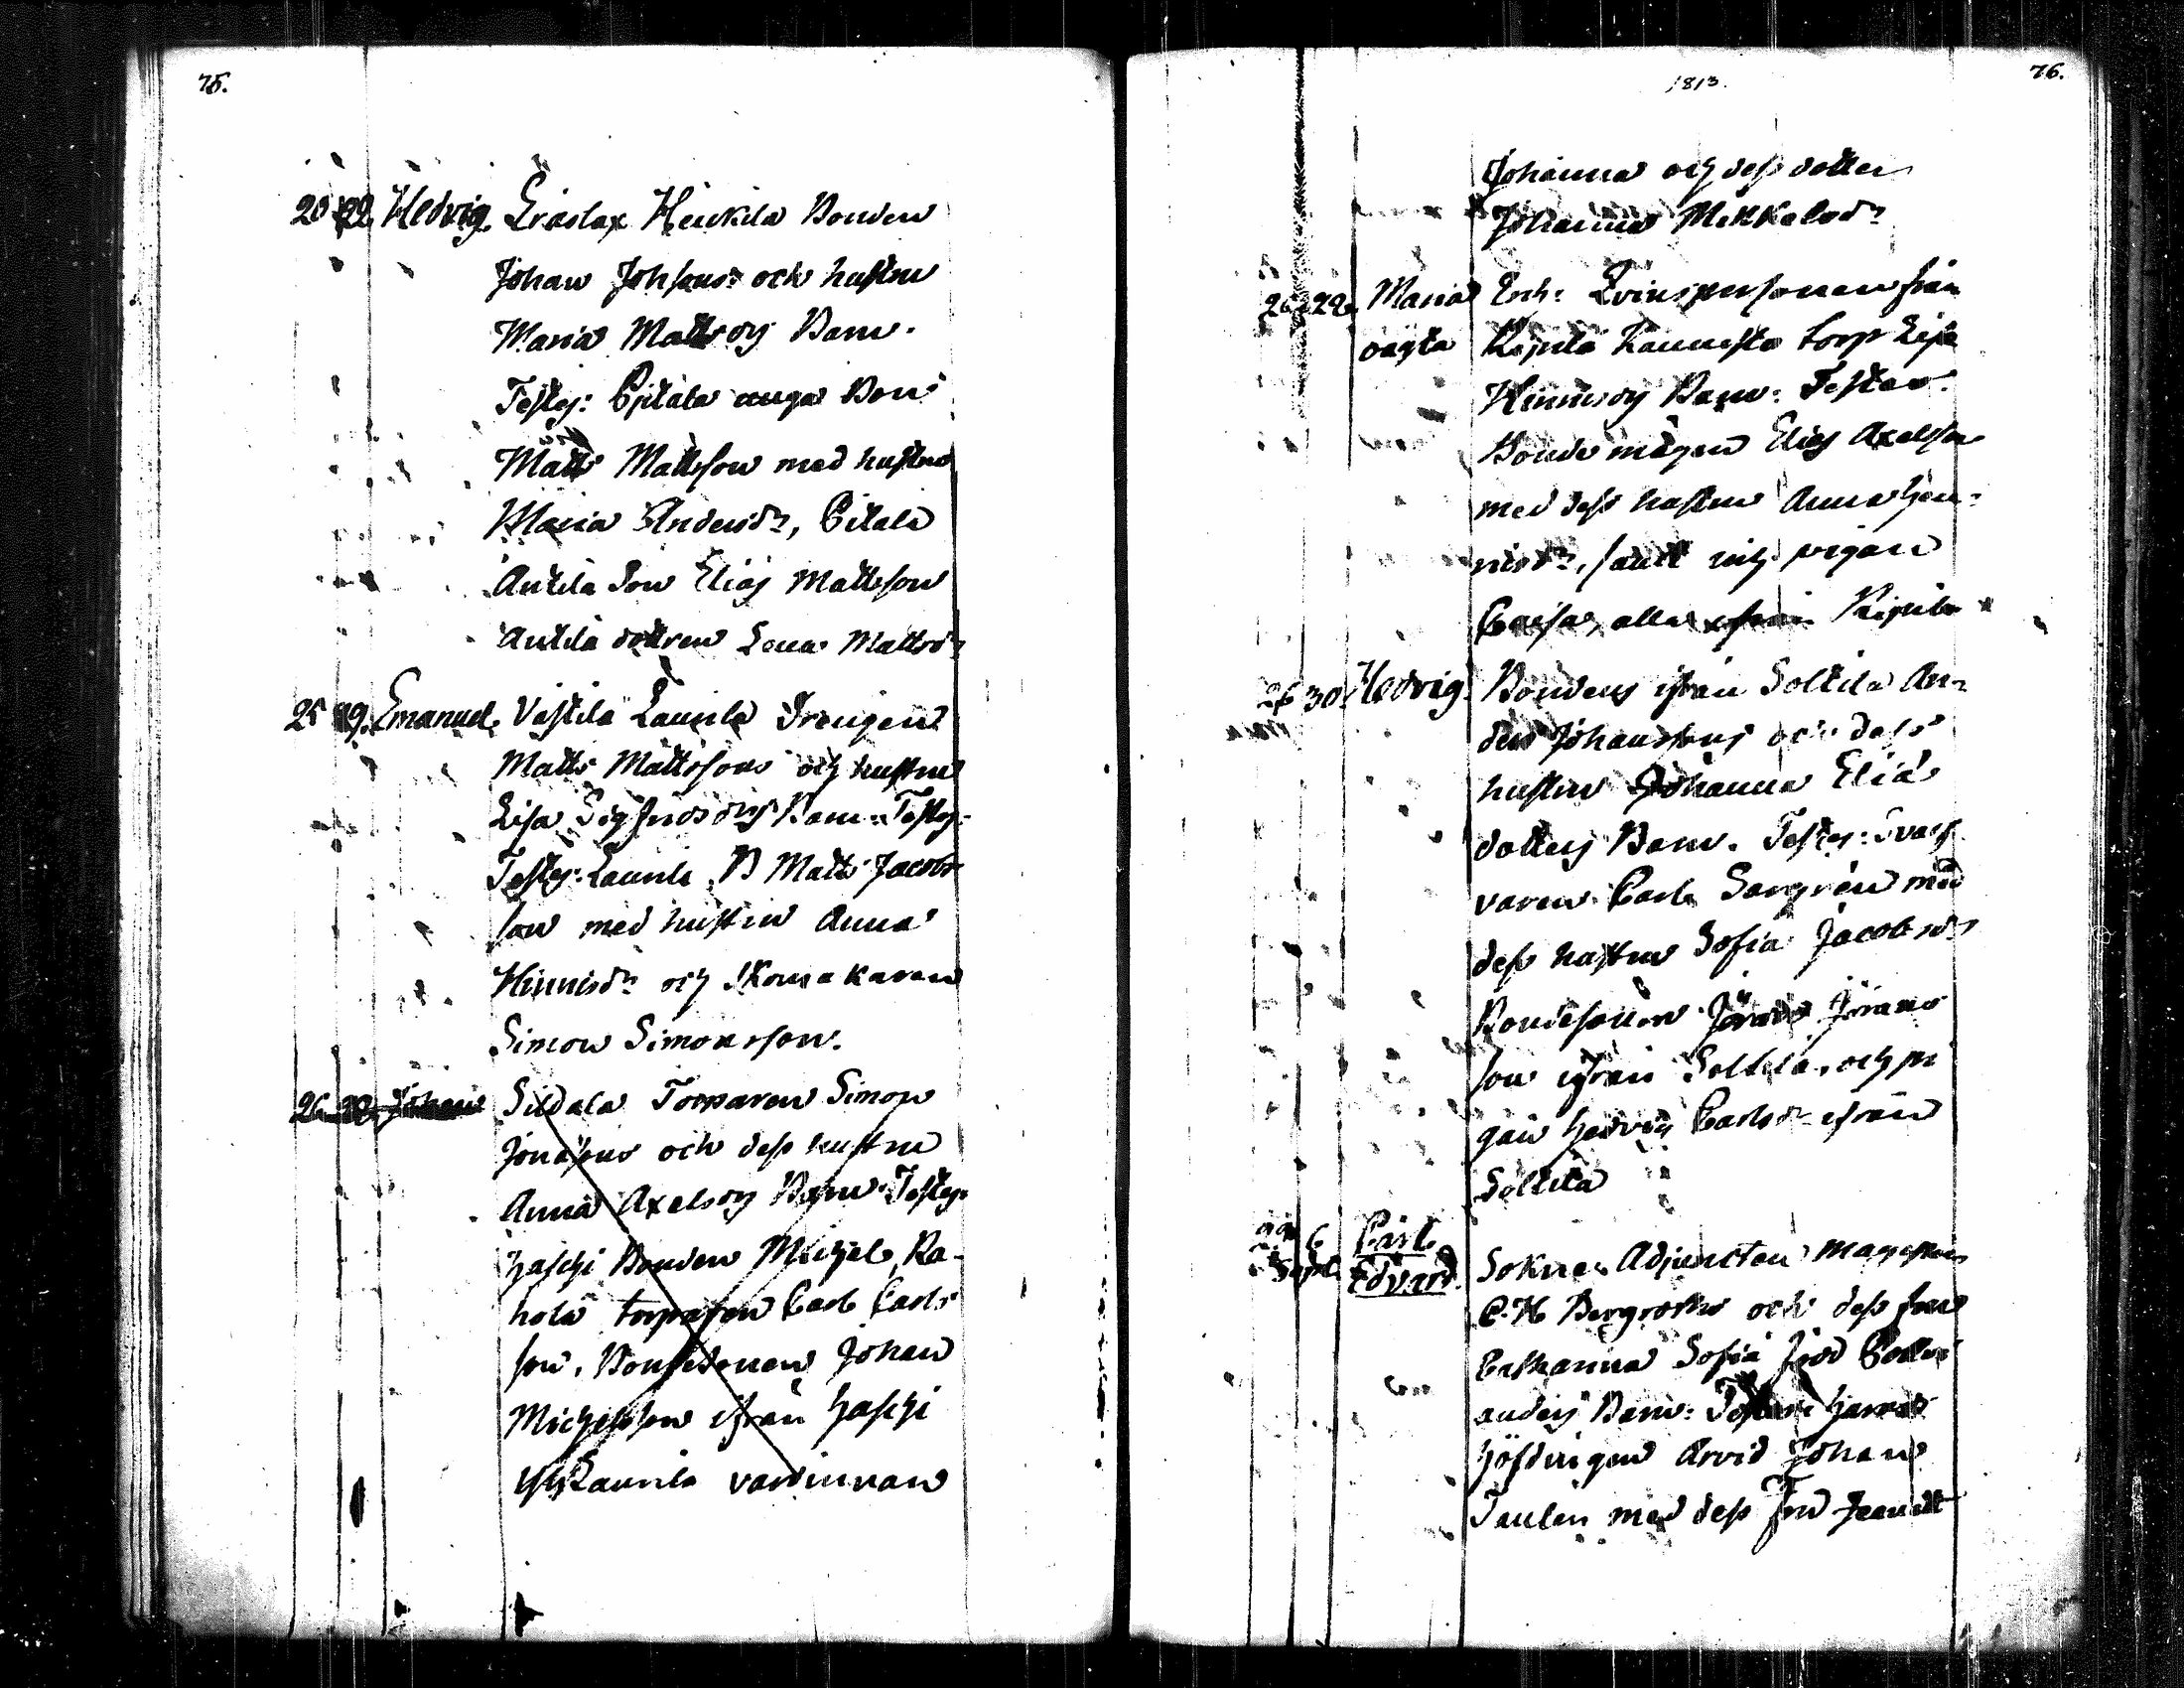 75.
20 22. Hedvig. Eräslax Heikkilä Bonden
Johan Johsons och hustru
Maria Mattsdrs Barn.
Testes: Pjetala unga Bon:
Matts Mattsson med hustru
Maria Andersdr, Pitala
Anttila Son Elias Mattsson
Anttila dottren Lena Mattsdr
25 29. Emanuel. Västilä Laurila Drengen
Matts Mattssons och hustru
Lisa Sigfridsdrs Barn. Testes:
Testes: Laurila B Matts Jacobs
son med hustru Anna
Hinrisdr och Skomakaren
Simon Simonsson.
26 28 Johan Sildala Torparen Simon
Jonæsons och dess hustru
Anna Axelsdrs Barn. Testes:
Haschi Bonden Michel, Ra-
hola torparen Carl Carls
son, Bondesonen Johan
Michelsson ifrån Haschi
och Laurila värdinnan
1813.
76.
Johanna och dess dotter
Johanna Mickelsdr
26 22. Maria Qvinspersonen från
oägta Kipilä torp Lisa
Hinrisdrs Barn: Testes:
Bonde mågen Elias Axelsson
med dess hustru Anna Hen-
risdr, samt pigan
Caisa, alla från Kipila
26 30. Hedvig. Bondens ifrån Solttila An-
ders Johanssons och dess
hustru Johanna Elias
dotters Barn. Testes: Svarf
varen Carl med
dess hustru Sofia Jacobsdr
Bondesonen Jöran Jörans
son ifrån Solttila, och pi
gan Hedvig Carlsdr ifrån
Solttila
29 6 Carl
Sept. Edvard. Sokne Adjuncten Magistern
C. H. Bergroths och dess fru
Catharina Sofia född
anders Barn: Testes: Härads
höfdingen Arvid Johan
med dess Fru